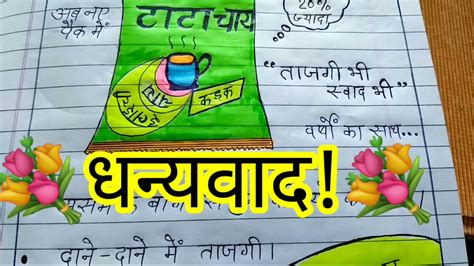 अब नए
पैक में
टाटा चाय
20%
ज्यादा
कड़क
"ताजगी भी
स्वाद भी"
वर्षों का साथ...
धन्यवाद!
• दाने-दाने में ताजगी।